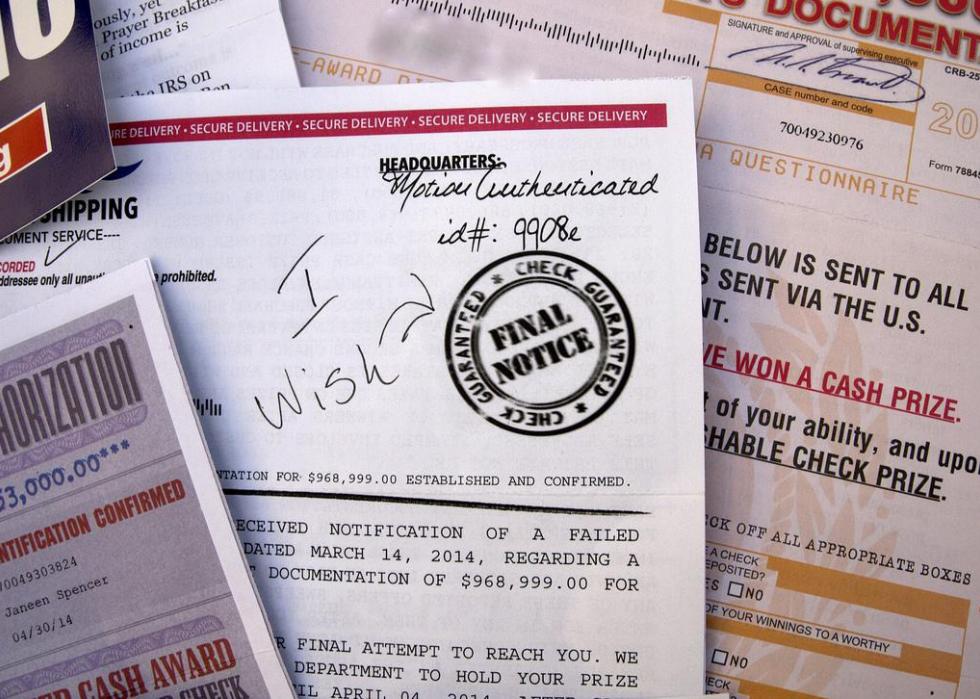 ously, yet
Prayer Breakfast
of income is
the IRS on
g
SHIPPING
UMENT SERVICE----
CORDED
ddressee only all unau
n prohibited.
HORIZATION
53,000.00***
NTIFICATION CONFIRMED
70049303824
Janeen Spencer
04/30/14
CASH AWARD
CHECK
URE DELIVERY • SECURE DELIVERY • SECURE DELIVERY • SECURE DELIVERY • SECURE DELIVERY
HEADQUARTERS:
Motion Authenticated
id#: 9908e
I
Wish
CHECK GUARANTEED * CHECK GUARANTEED *
FINAL
NOTICE
NTATION FOR $968,999.00 ESTABLISHED AND CONFIRMED.
ECEIVED NOTIFICATION OF A FAILED
DATED MARCH 14, 2014, REGARDING A
T DOCUMENTATION OF $968,999.00 FOR
R FINAL ATTEMPT TO REACH YOU. WE
DEPARTMENT TO HOLD YOUR PRIZE
IL APRIL 04, 2014.
-AWARD
DOCUMENT
SIGNATURE and APPROVAL of supervising executive
CRB-25
CASE number and code
70049230976
20
Form 7884
A QUESTIONNAIRE
BELOW IS SENT TO ALL
S SENT VIA THE U.S.
NT.
VE WON A CASH PRIZE.
t of your ability, and upo
SHABLE CHECK PRIZE.
CK OFF ALL APPROPRIATE BOXES
E A CHECK
EPOSITED?
ES □ NO
OF YOUR WINNINGS TO A WORTHY
□ NO
ECK